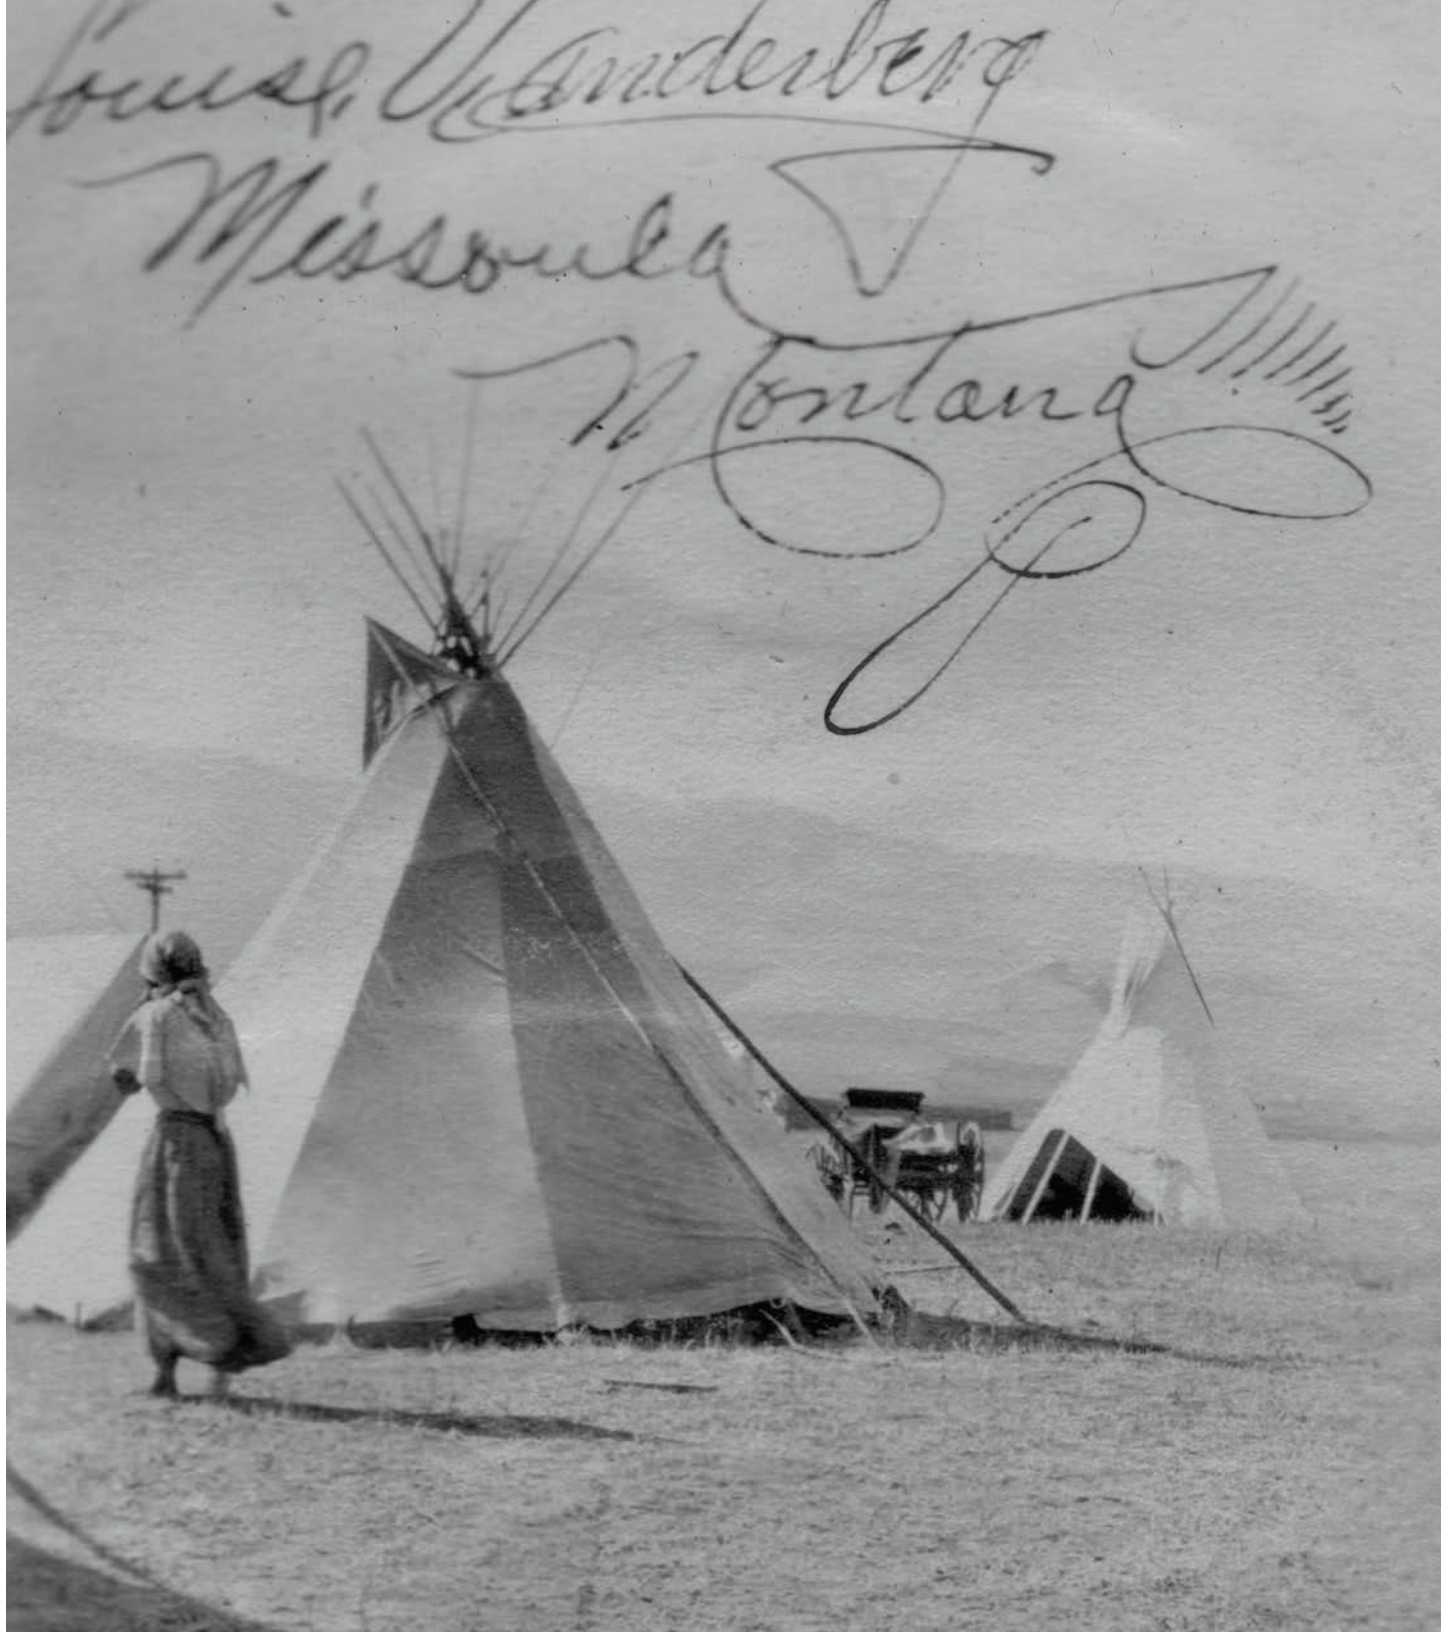 Louise Vanderberg
Missoula
Montana